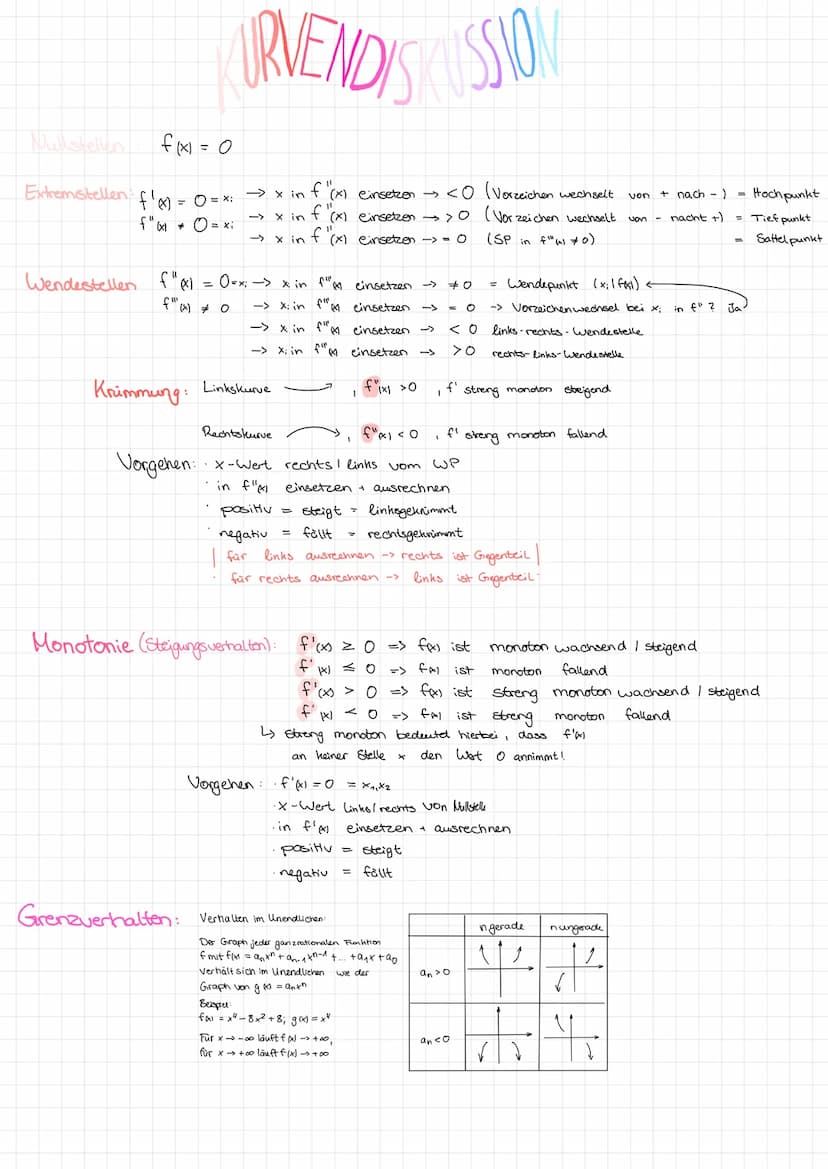 KURVENDISKUSSION
Nullstellen f(x) = 0
Extremstellen: f'(x) = 0 = xᵢ → x in f''(x) einsetzen → < 0 (Vorzeichen wechselt von + nach -) = Hochpunkt
f''(x) ≠ 0 = xᵢ → x in f''(x) einsetzen → > 0 (Vorzeichen wechselt von - nacht +) = Tiefpunkt
→ x in f''(x) einsetzen → = 0 (SP in f'''(x) ≠ 0) = Sattelpunkt
Wendestellen f''(x) = 0 = xᵢ → x in f'''(x) einsetzen → ≠ 0 = Wendepunkt (xᵢ | f(x)) ←
f'''(x) ≠ 0 → xᵢ in f'''(x) einsetzen → = 0 → Vorzeichenwechsel bei xᵢ in f''? Ja
→ x in f'''(x) einsetzen → < 0 links-rechts-Wendestelle
→ xᵢ in f'''(x) einsetzen → > 0 rechts-links-Wendestelle
Krümmung: Linkskurve →, f''(x) > 0, f' streng monoton steigend
Rechtskurve →, f''(x) < 0, f' streng monoton fallend
Vorgehen: · x-Wert rechts / links vom WP
· in f''(x) einsetzen + ausrechnen
· positiv = steigt = linksgekrümmt
· negativ = fällt = rechtsgekrümmt
| für links ausrechnen -> rechts ist Gegenteil |
· für rechts ausrechnen -> links ist Gegenteil
Monotonie (Steigungsverhalten): f'(x) ≥ 0 => f(x) ist monoton wachsend / steigend
f'(x) ≤ 0 => f(x) ist monoton fallend
f'(x) > 0 => f(x) ist streng monoton wachsend / steigend
f'(x) < 0 => f(x) ist streng monoton fallend
↳ streng monoton bedeutet hierbei, dass f'(x)
an keiner Stelle x den Wert 0 annimmt!
Vorgehen: · f'(x) = 0 = x₁, x₂
· x-Wert links/rechts von Nullstelle
· in f'(x) einsetzen + ausrechnen
· positiv = steigt
· negativ = fällt
Grenzverhalten: Verhalten im Unendlichen:
Der Graph jeder ganzrationalen Funktion
f mit f(x) = aₙxⁿ + aₙ₋₁xⁿ⁻¹ + ... + a₁x + a₀
verhält sich im Unendlichen wie der
Graph von g(x) = aₙxⁿ
Beispiel:
f(x) = x⁴ - 8x² + 8; g(x) = x⁴
Für x → -∞ läuft f(x) → +∞,
für x → +∞ läuft f(x) → +∞
n gerade n ungerade
aₙ > 0
aₙ < 0